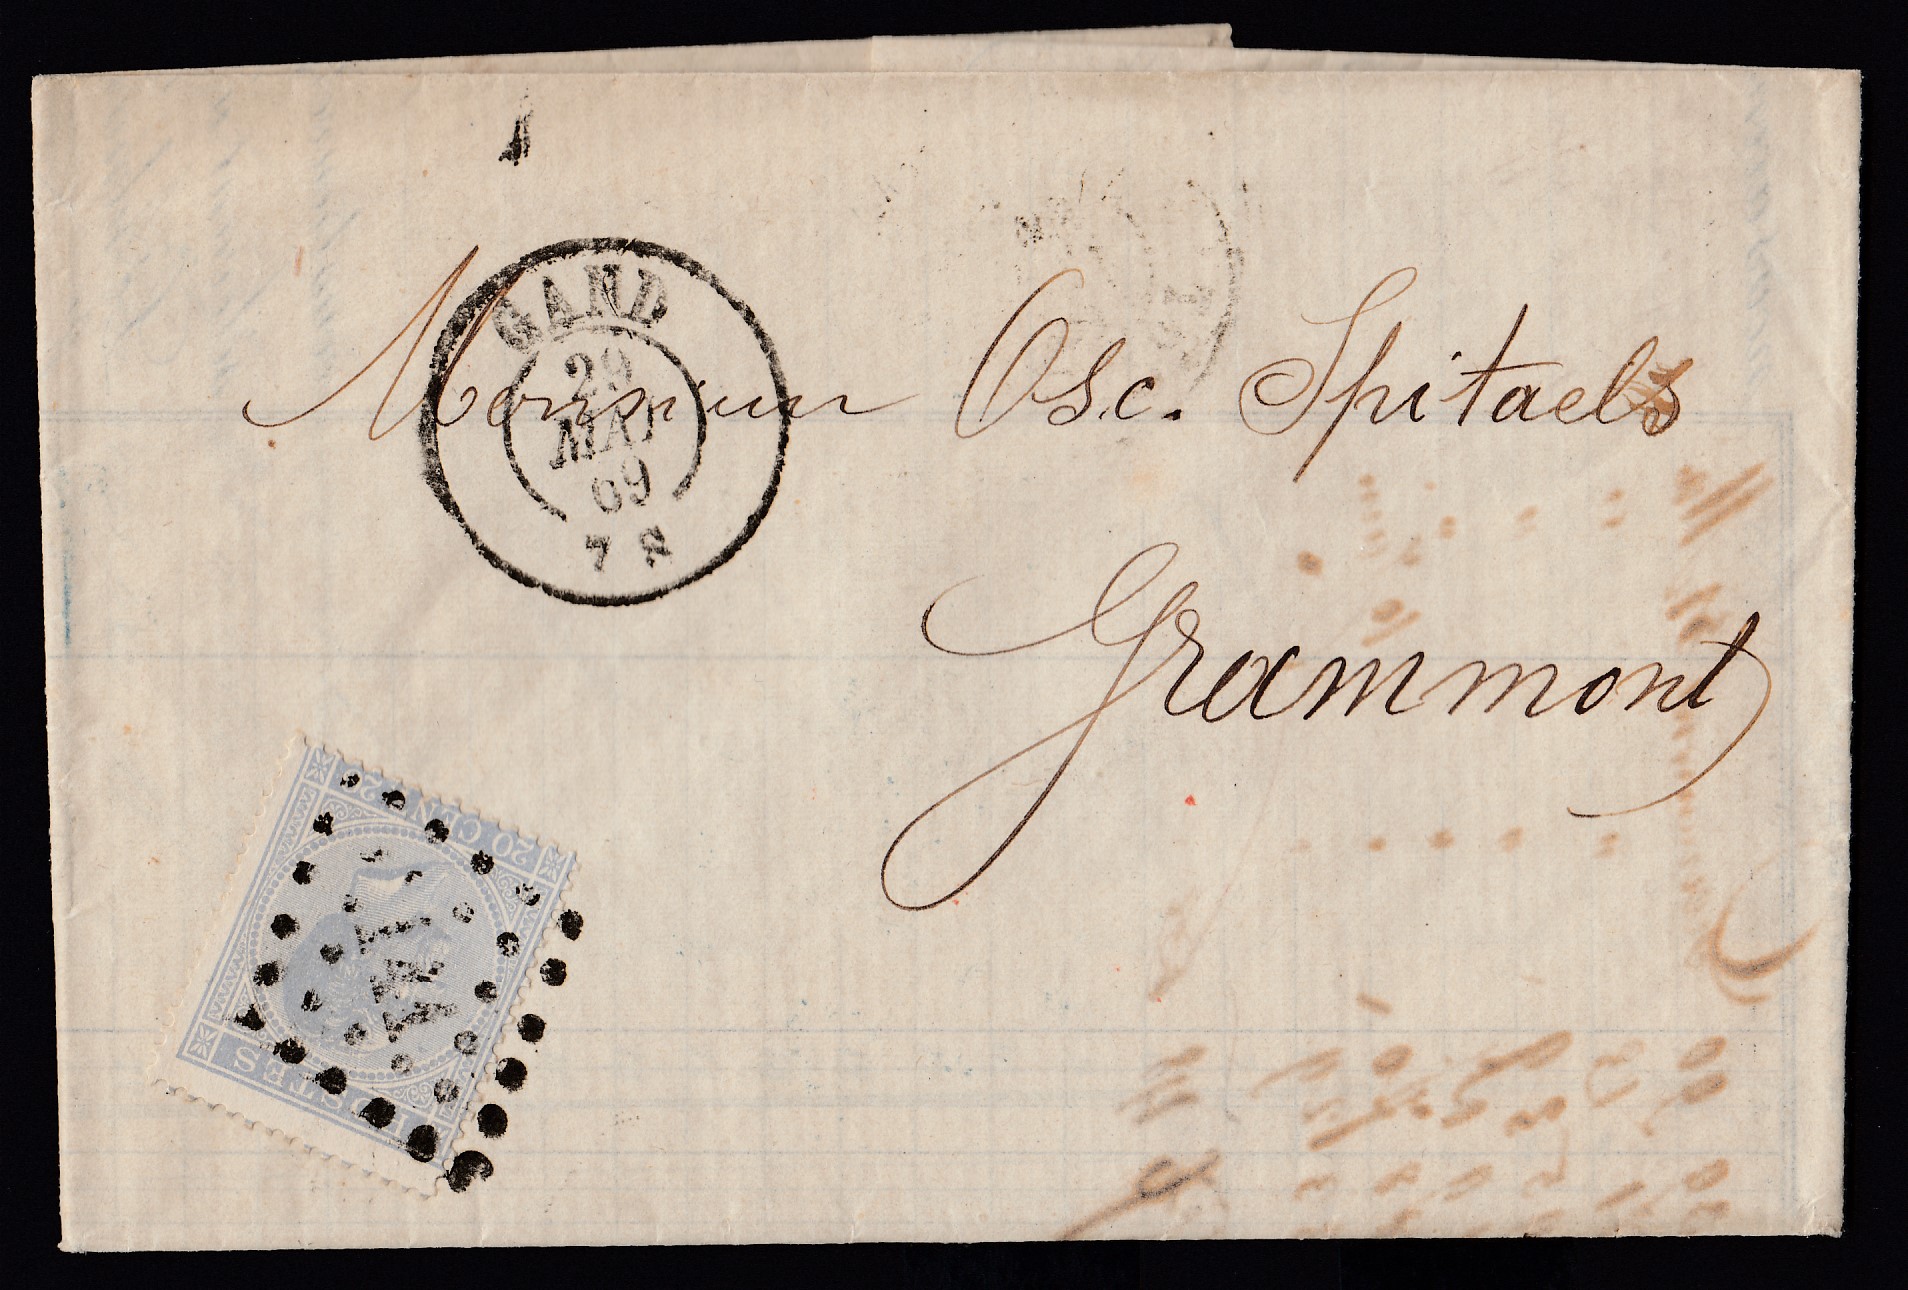 GAND
29
MAI
69
7 S
Monsieur Osc. Spitaels
Grammont
20 CENT. 20
POSTES